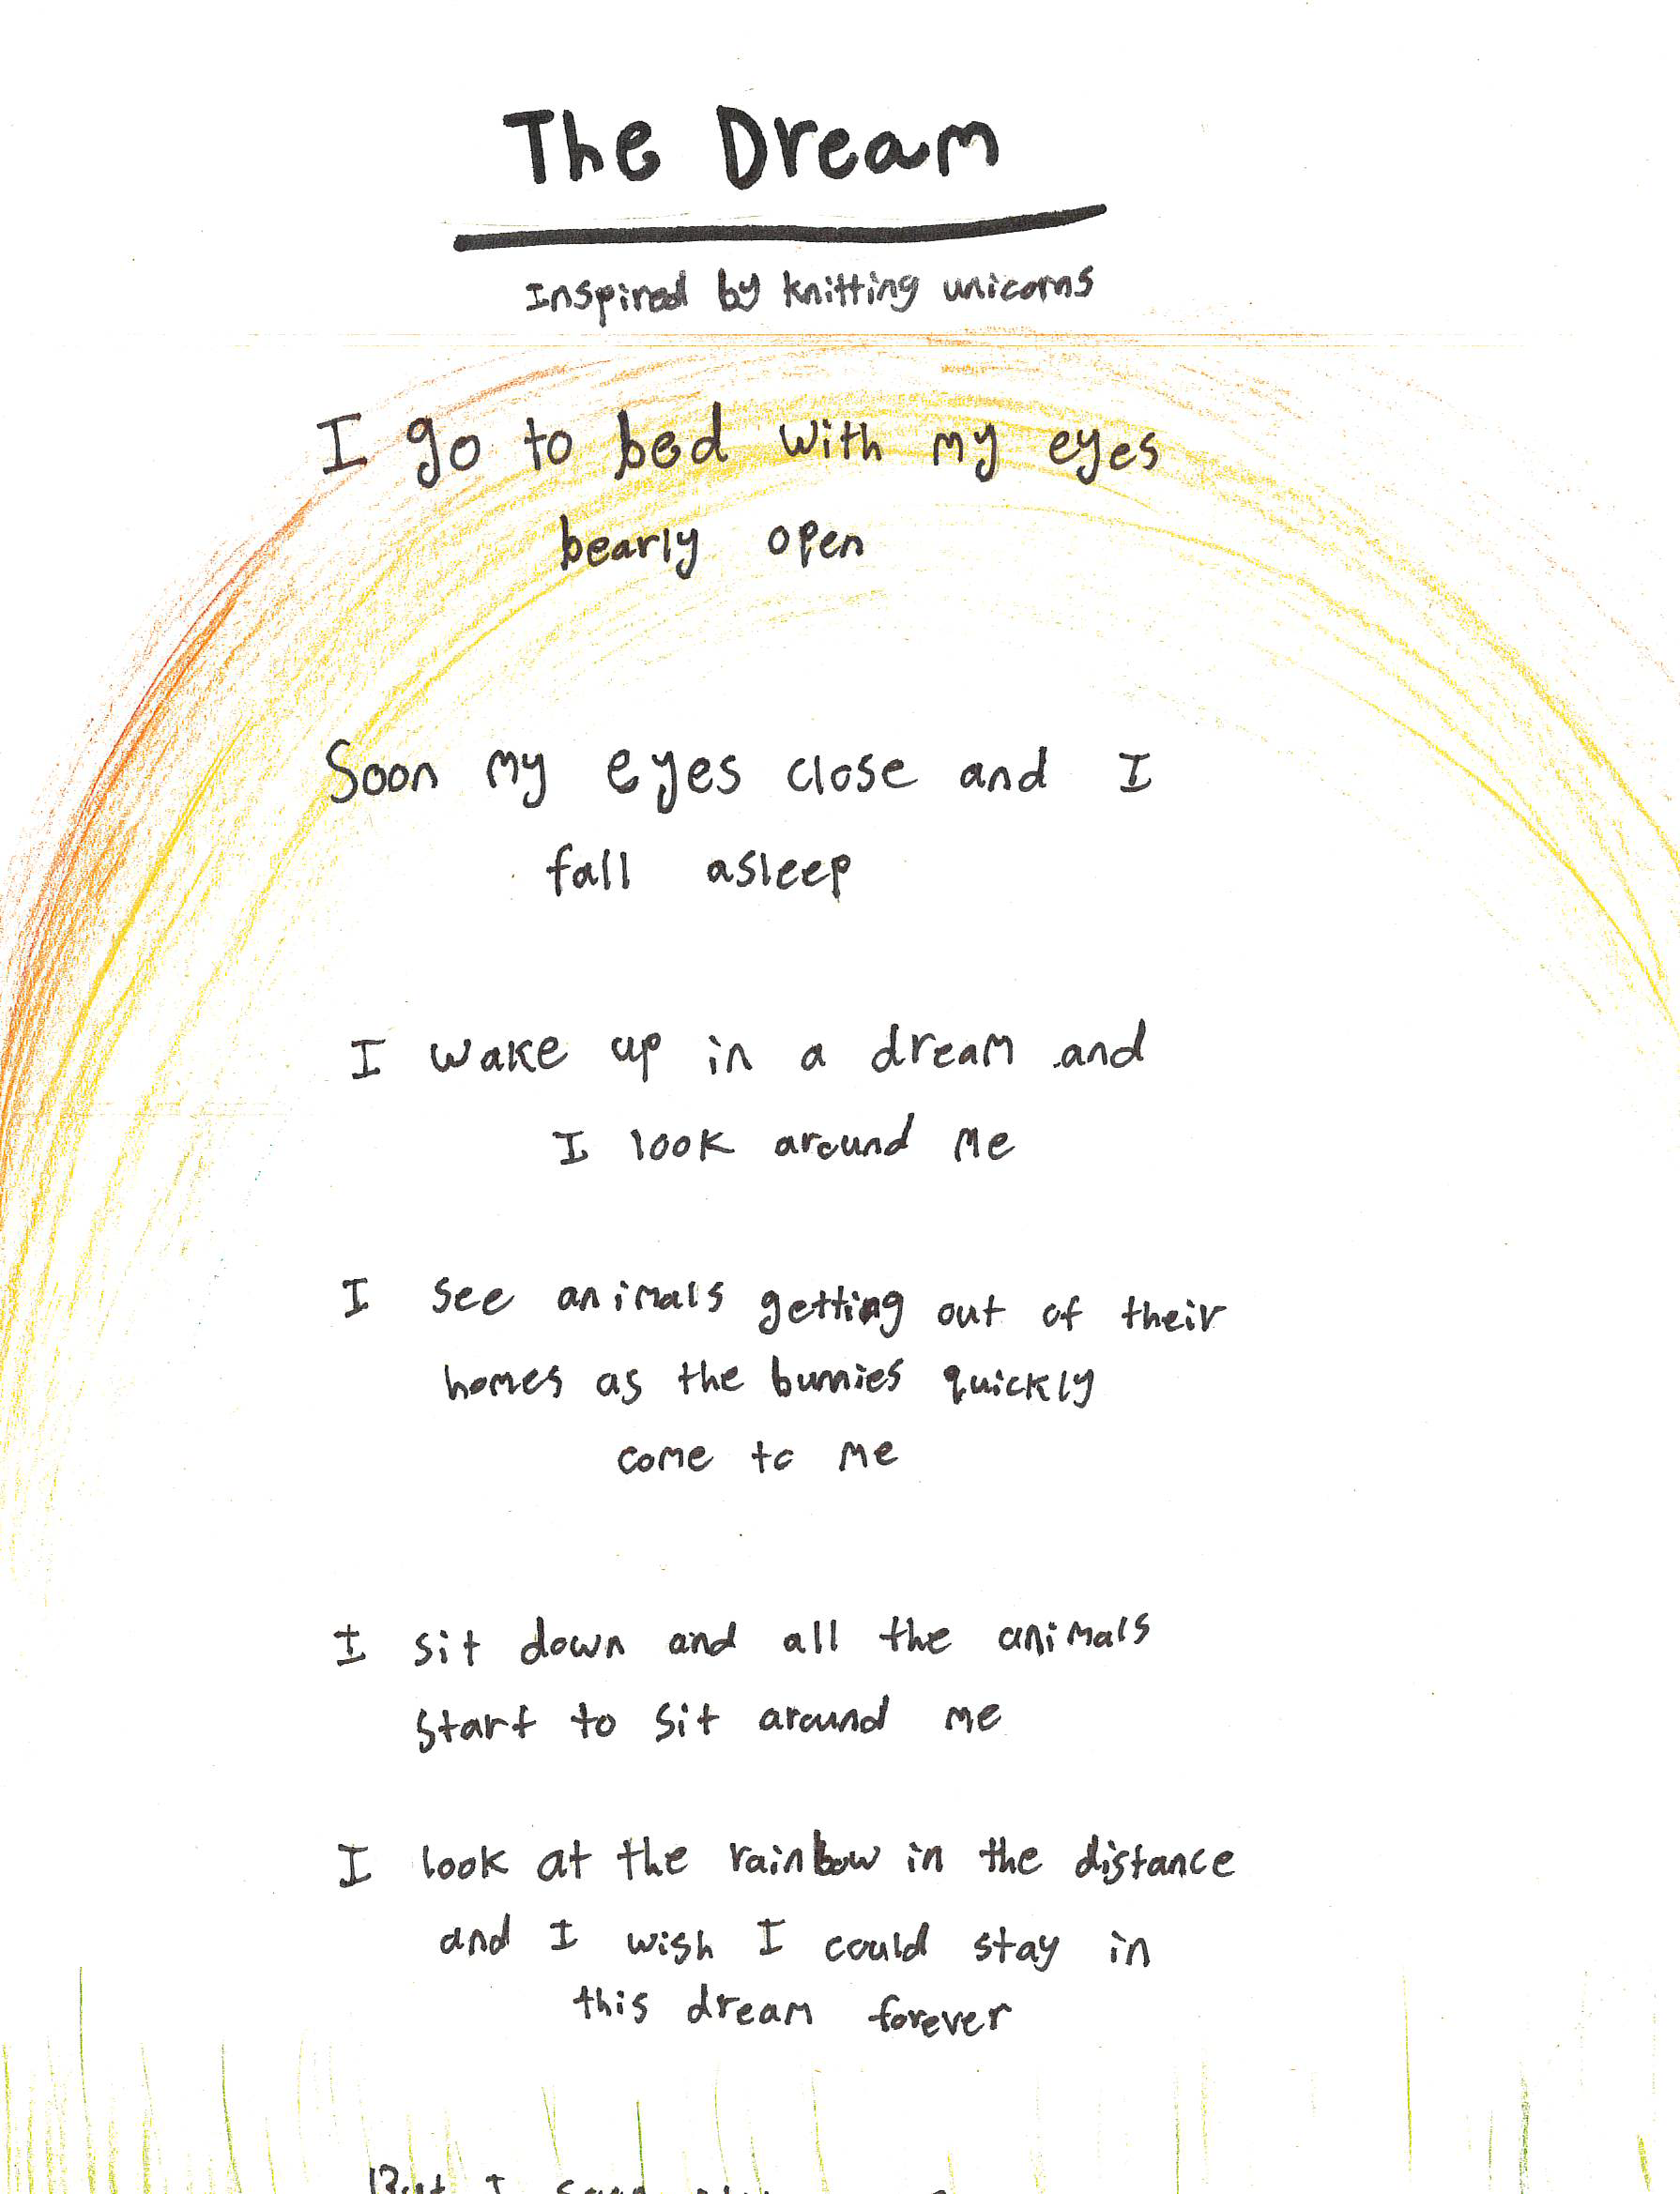 The Dream
Inspired by knitting unicorns
I go to bed with my eyes
bearly open
Soon my eyes close and I
fall asleep
I wake up in a dream and
I look around me
I see animals getting out of their
homes as the bunnies quickly
come to me
I sit down and all the animals
start to sit around me
I look at the rainbow in the distance
and I wish I could stay in
this dream forever
But I soon